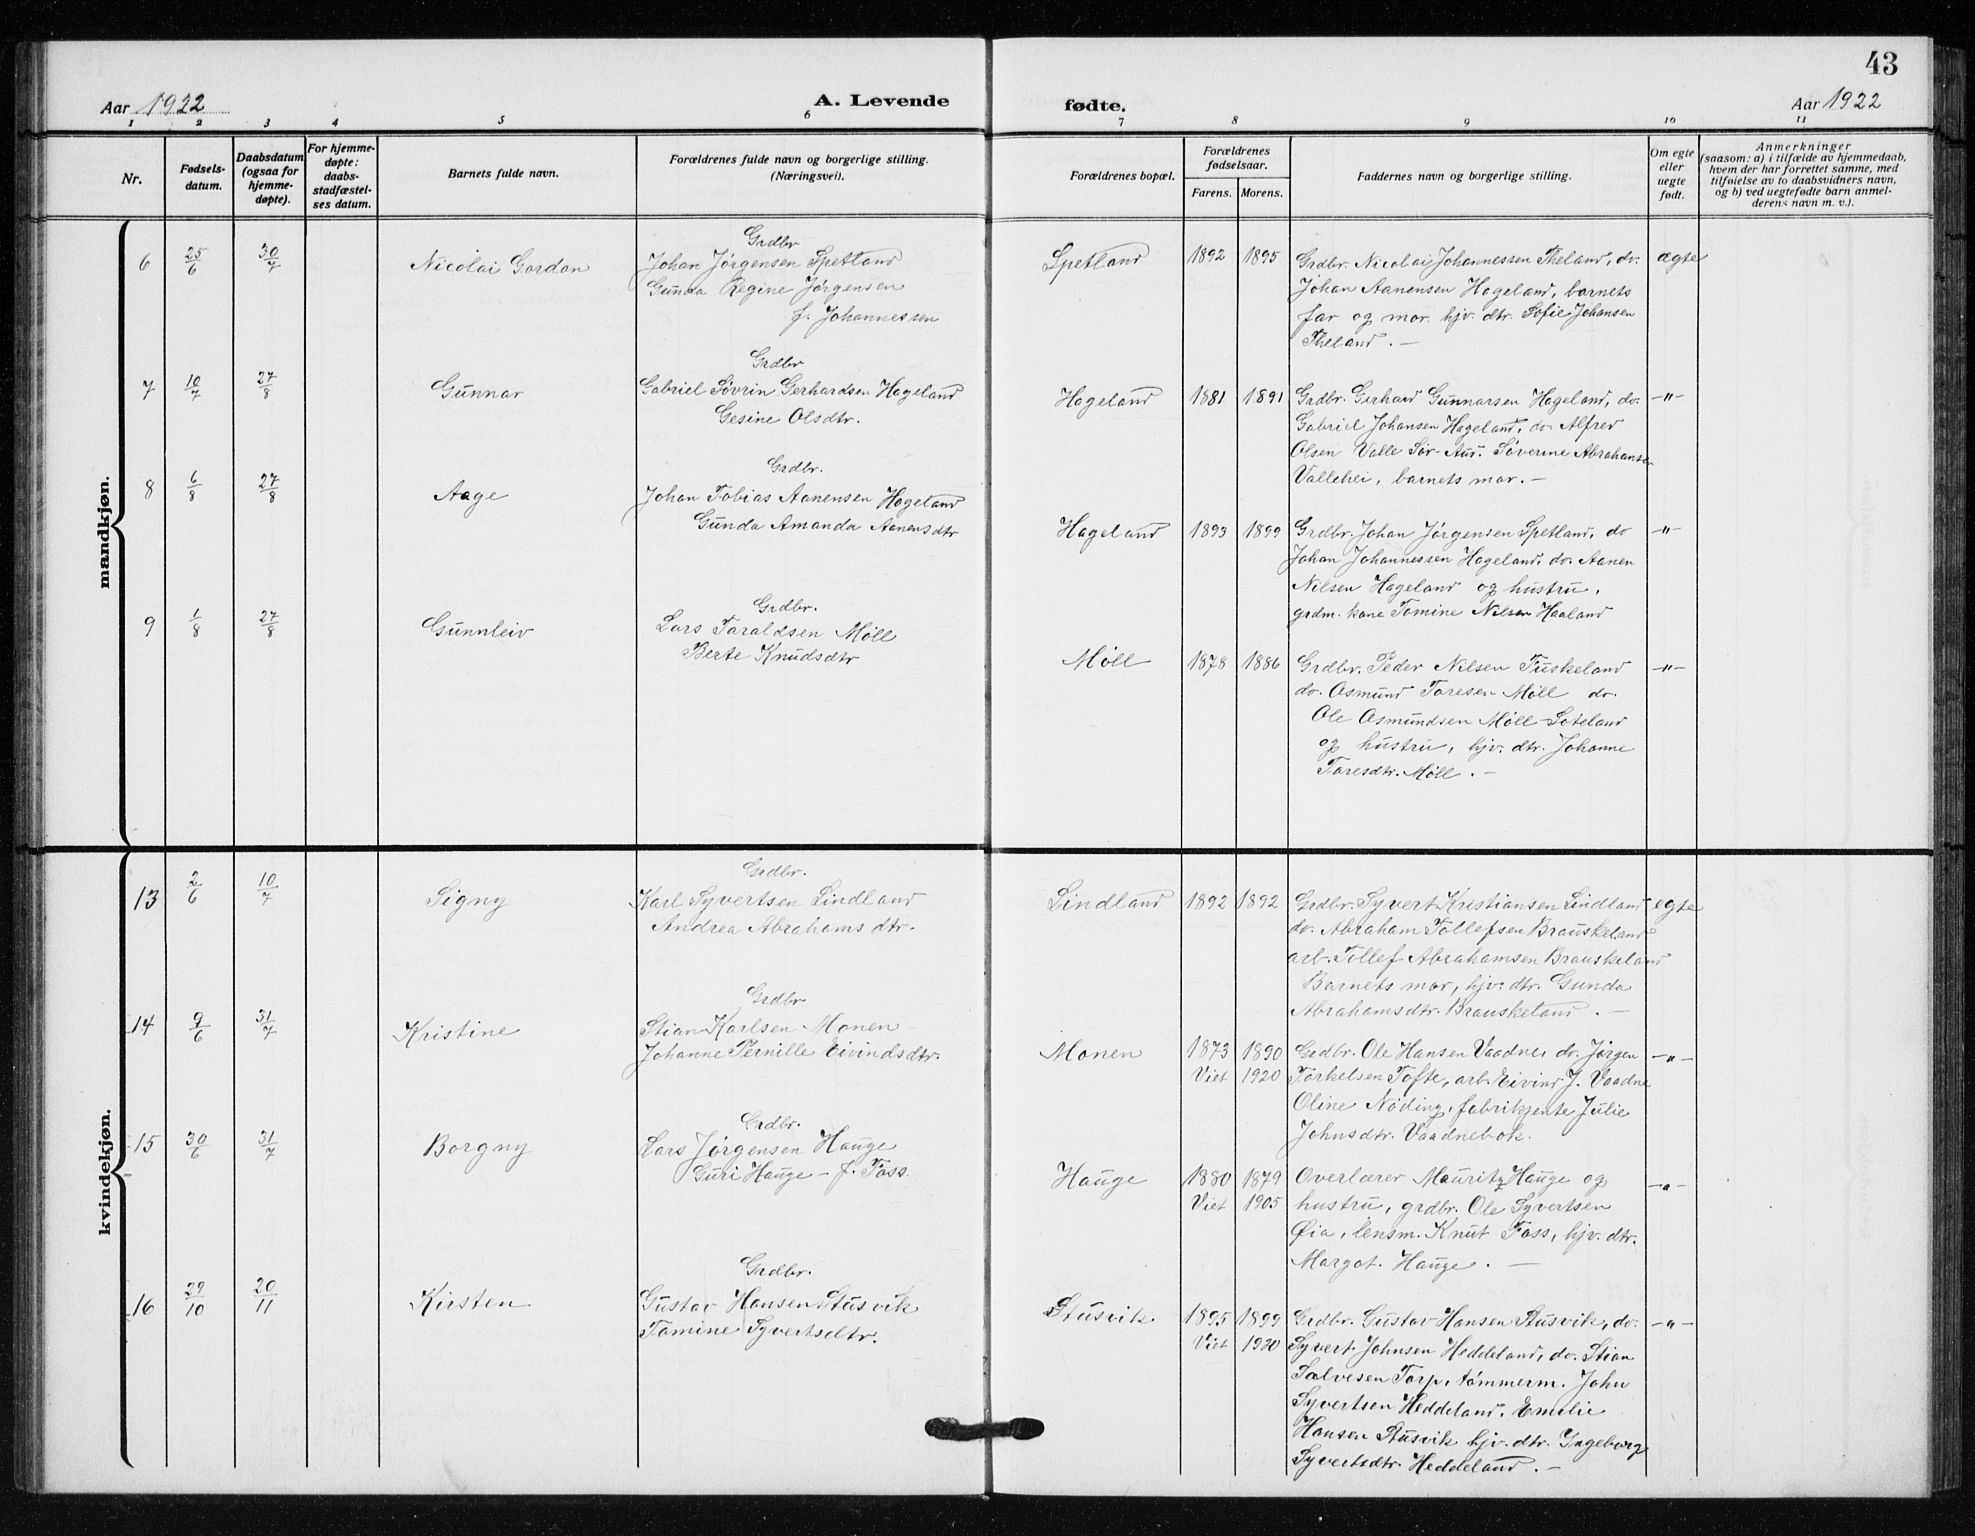 43
Aar 1922
A. Levende
fødte.
Aar 1922
1 2 3 4 5 6 7 8 9 10 11
Nr.
Fødsels-
datum.
Daabsdatum
(ogsaa for
hjemme-
døpte).
For hjemme-
døpte:
daabs-
stadfæstel-
ses datum.
Barnets fulde navn.
Forældrenes fulde navn og borgerlige stilling.
(Næringsvei).
Forældrenes bopæl.
Forældrenes
fødselsaar.
Farens. Morens.
Faddernes navn og borgerlige stilling.
Om egte
eller
uegte
født.
Anmerkninger
(saasom: a) i tilfælde av hjemmedaab,
hvem der har forrettet samme, med
tilføielse av to daabsvidners navn,
og b) ved uegtefødte barn anmel-
derens navn m. v.).
mandkjøn.
6 25/6 30/7 Nicolai Gordon
Grdbr
Johan Jørgensen Spetland
Gunda Regine Jørgensen
f. Johannessen
Spetland 1892 1895
Grdbr. Nicolai Johannessen Theland, do.
Johan Aanensen Hageland, barnets
far og mor. hjv. dtr. Sofie Johansen
Theland. —
ægte
7 10/7 27/8 Gunnar
Grdbr
Gabriel Søvrin Gerhardsen Hageland
Gesine Olsdtr.
Hageland 1881 1891
Grdbr. Gerhard Gunnarsen Hageland, do.
Gabriel Johansen Hageland, do. Alfred
Olsen Valle Sør-Aud. Søverine Abrahansen
Vallehei, barnets mor. —
—"—
8 6/8 27/8 Aage
Grdbr.
Johan Tobias Aanensen Hageland
Gunda Amanda Aanensdtr
Hageland 1893 1899
Grdbr. Johan Jørgensen Spetland, do
Johan Johannessen Hageland, do. Aanen
Nilsen Hageland og hustru,
grdm. kone Tomine Nilsen Haaland
—"—
9 1/8 27/8 Gunnleiv
Grdbr.
Lars Taraldsen Møll
Berte Knudsdtr
Møll 1878 1886
Grdbr. Peder Nilsen Tuskeland
do. Osmund Toresen Møll do.
Ole Osmundsen Møll-Soteland
og hustru, hjv. dtr. Johanne
Toresdtr. Møll. —
—"—
kvindekjøn.
13 2/6 10/7 Signy
Grdbr.
Karl Syvertsen Lindland
Andrea Abrahamsdtr.
Lindland 1892 1892
Grdbr. Syvert Kristiansen Lindland
do. Abraham Tollefsen Brauskeland
arb. Tollef Abrahamsen Brauskeland
Barnets mor, hjv. dtr. Gunda
Abrahamsdtr. Brauskeland. —
egte
14 9/6 31/7 Kristine
Grdbr
Stian Karlsen Monen
Johanne Pernille Eivindsdtr.
Monen 1873 1890
Viet 1920
Grdbr. Ole Hansen Vaadne, do. Jørgen
Torkelsen Tofte, arb. Eivind J. Vaadne
Oline Nøding, fabrikjente Julie
Johnsdtr. Vaadnebok.
—"—
15 30/6 31/7 Borgny
Grdbr.
Lars Jørgensen Hauge
Guri Hauge — f. Foss.
Hauge 1880 1879
Viet 1905
Overlærer Mauritz Hauge og
hustru, grdbr. Ole Syvertsen
Øia, lensm. Knut Foss, hjv. dtr.
Margot Hauge. —
—"—
16 29/10 20/11 Kirsten
Grdbr.
Gustav Hansen Stusvik
Tomine Syvertsdtr.
Stusvik 1895 1899
Viet 1920
Grdbr. Gustav Hansen Stusvik, do.
Syvert Johnsen Heddeland, do. Stian
Salvesen Torp, tømmerm. John
Syvertsen Heddeland, Emelie
Hansen Stusvik hjv. dtr. Ingeborg
Syvertsdtr. Heddeland. —
—"—